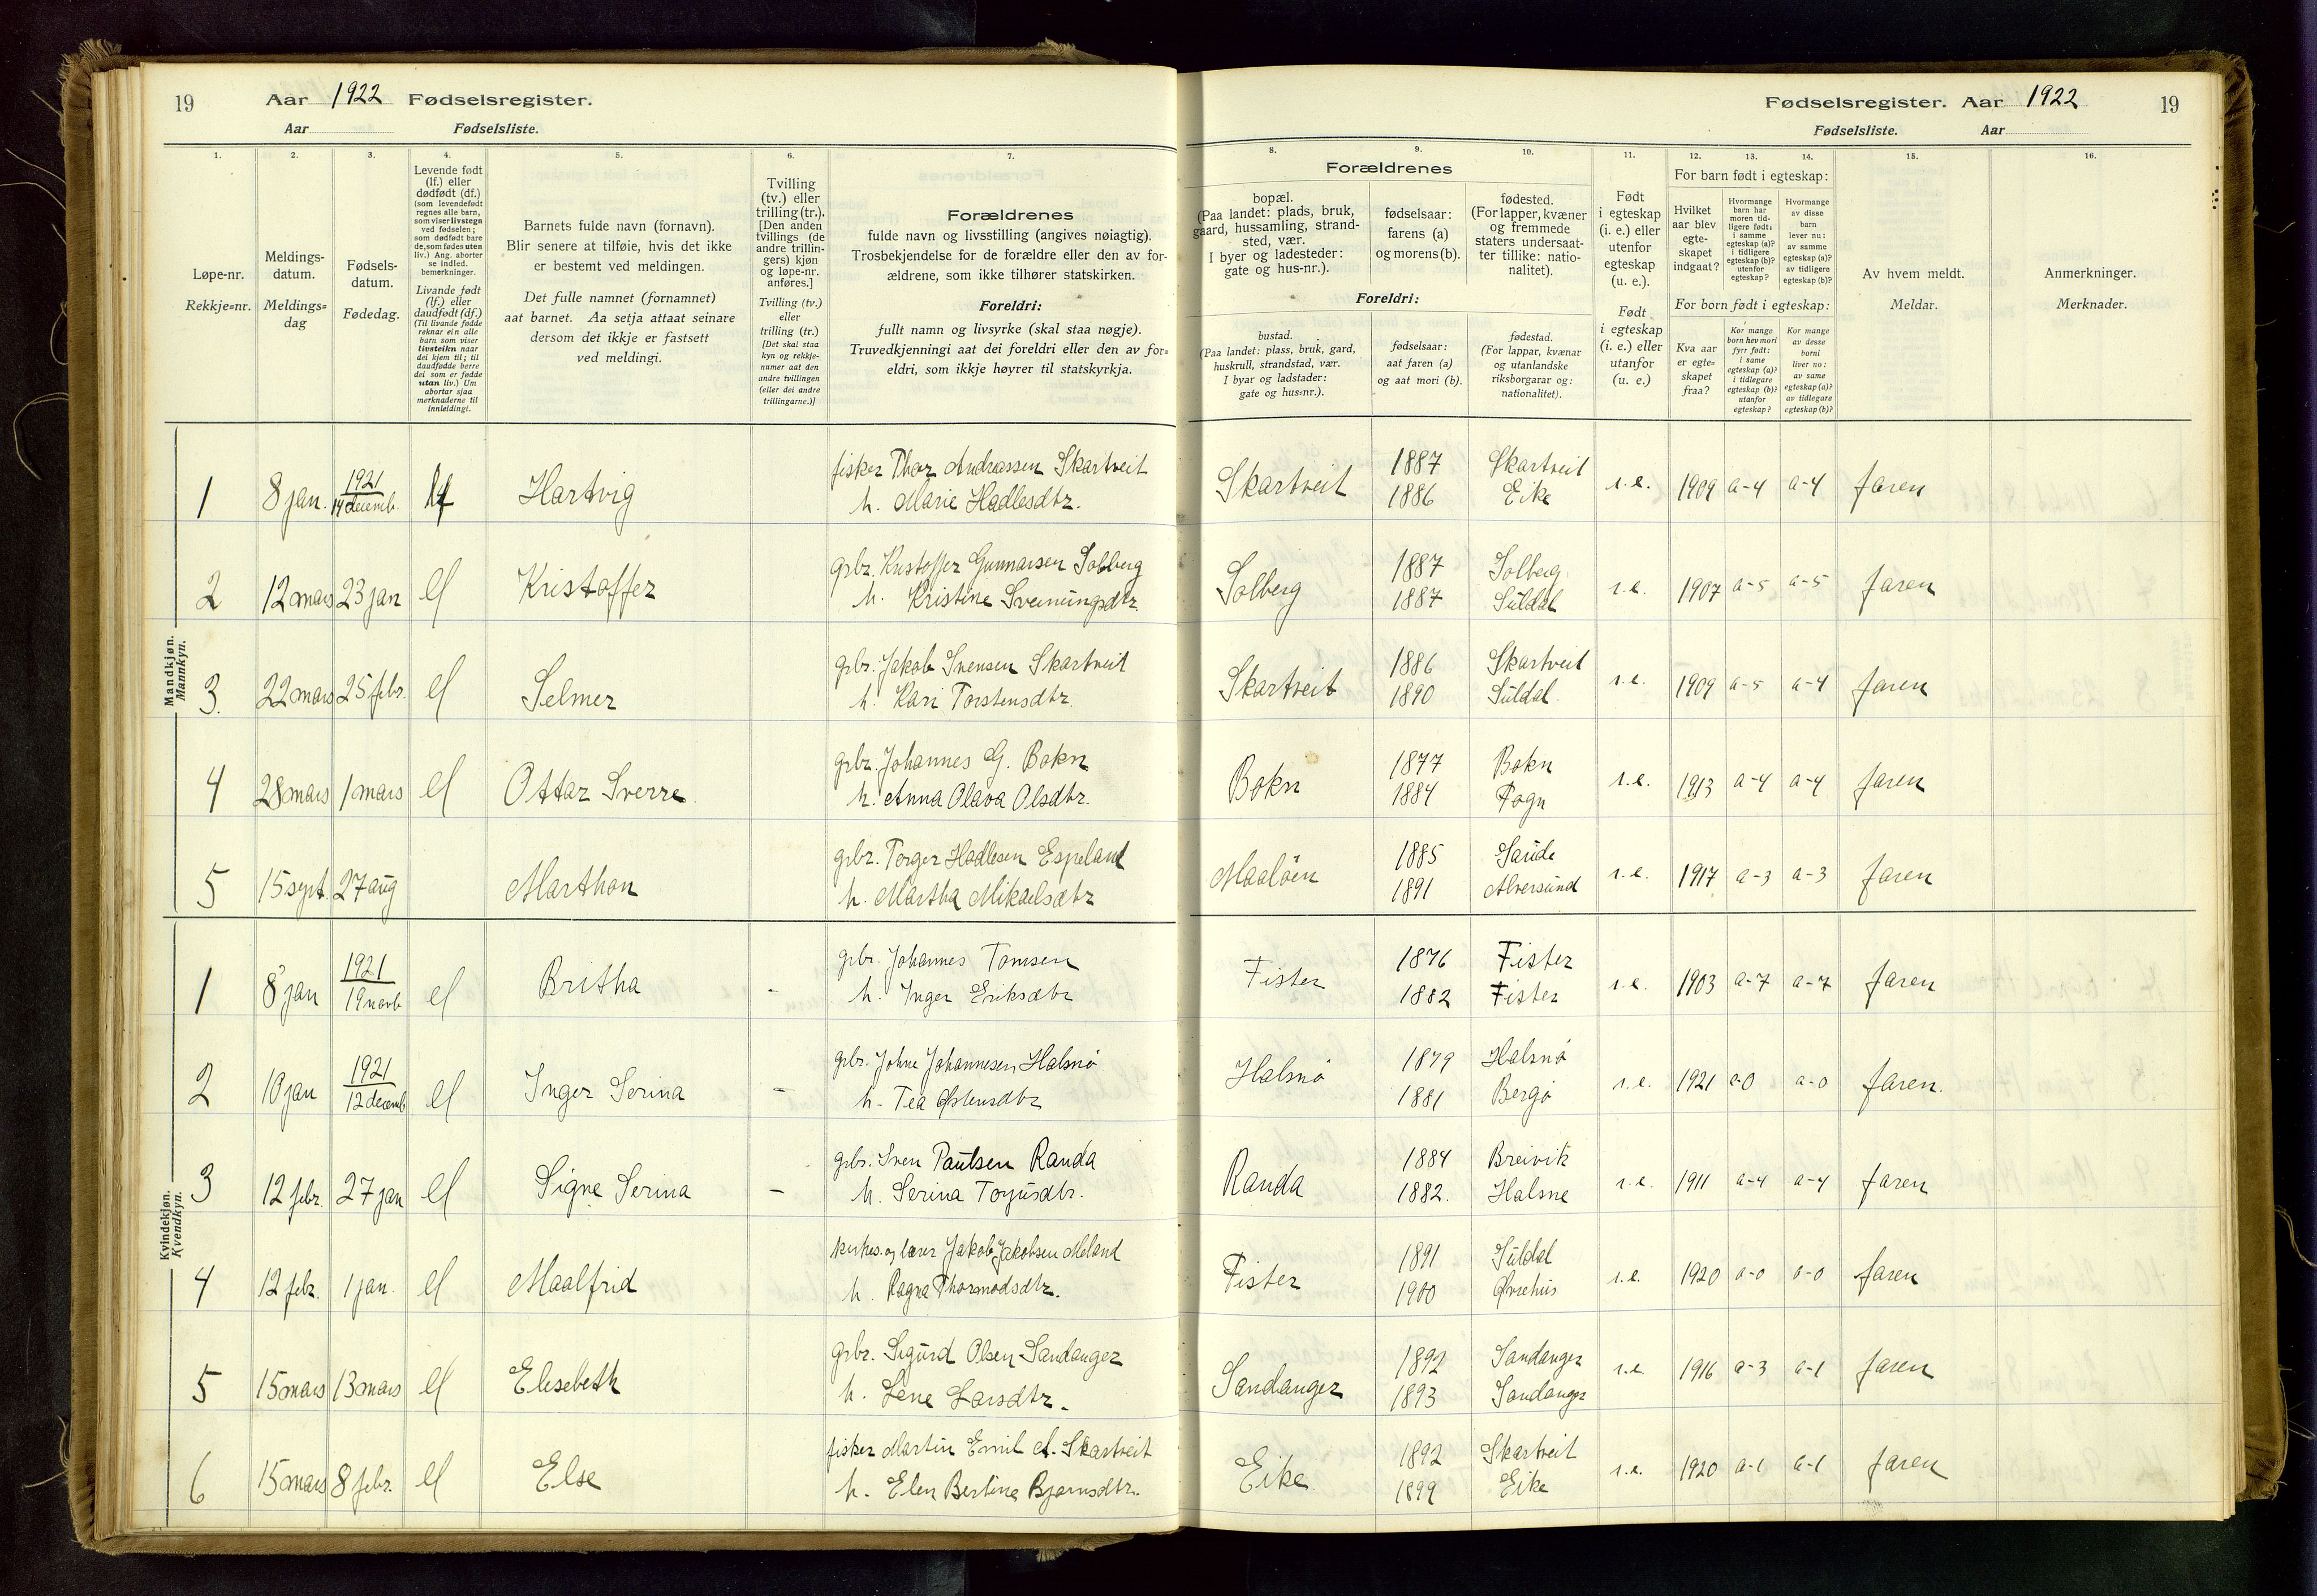 19 Aar 1922 Fødselsregister.
Aar Fødselsliste.
Fødselsregister. Aar 1922 19
Fødselsliste. Aar
1. 2. 3. 4. 5. 6. 7.
Løpe-nr.
Rekkje=nr.
Meldings-
datum.
Meldings=
dag
Fødsels-
datum.
Fødedag.
Levende født
(lf.) eller
dødfødt (df.)
(som levendefødt
regnes alle barn,
som viser livstegn
ved fødselen;
som dødfødt bare
de, som fødes uten
liv.) Ang. aborter
se indled.
bemerkninger.
Livande født
(lf.) eller
daudfødt (df.)
(Til livande fødde
reknar ein alle
barn som viser
livsteikn naar
dei kjem til; til
daudfødde berre
dei som er fødde
utan liv.) Um
abortar sjaa
merknaderne til
innleidingi.
Barnets fulde navn (fornavn).
Blir senere at tilføie, hvis det ikke
er bestemt ved meldingen.
Det fulle namnet (fornamnet)
aat barnet. Aa setja attaat seinare
dersom det ikkje er fastsett
ved meldingi.
Tvilling
(tv.) eller
trilling (tr.).
[Den anden
tvillings (de
andre trillin-
gers) kjøn
og løpe-nr.
anføres.]
Tvilling (tv.)
eller
trilling (tr.)
[Det skal staa
kyn og rekkje-
numer aat den
andre tvillingen
(eller dei andre
trillingarne.)]
Forældrenes
fulde navn og livsstilling (angives nøiagtig).
Trosbekjendelse for de forældre eller den av for-
ældrene, som ikke tilhører statskirken.
Foreldri:
fullt namn og livsyrke (skal staa nøgje).
Truvedkjenningi aat dei foreldri eller den av for=
eldri, som ikkje høyrer til statskyrkja.
8. 9. 10. 11. 12. 13. 14. 15. 16.
Forældrenes
bopæl.
(Paa landet: plads, bruk,
gaard, hussamling, strand-
sted, vær.
I byer og ladesteder:
gate og hus-nr.).
fødselsaar:
farens (a)
og morens (b).
fødested.
(For lapper, kvæner
og fremmede
staters undersaat-
ter tillike: natio-
nalitet).
Foreldri:
bustad.
(Paa landet: plass, bruk, gard,
huskrull, strandstad, vær.
I byar og ladstader:
gate og hus=nr.).
fødselsaar:
aat faren (a)
og aat mori (b).
fødestad.
(For lappar, kvænar
og utanlandske
riksborgarar og:
nationalitet).
Født
i egteskap
(i. e.) eller
utenfor
egteskap
(u. e.).
Født
i egteskap
(i. e.) eller
utanfor
(u. e.)
For barn født i egteskap:
Hvilket
aar blev
egte-
skapet
indgaat?
Hvormange
barn har
moren tid-
ligere født:
i samme
egteskap (a)?
i tidligere
egteskap (b)?
utenfor
egteskap?
Hvormange
av disse
barn
lever nu:
av samme
egteskap (a)?
av tidligere
egteskap (b)?
For born født i egteskap:
Kva aar
er egte-
skapet
fraa?
Kor mange
born hev mori
fyrr født:
i same
egteskap (a)?
i tidlegare
egteskap (b)?
utanfor
egteskap?
Kor mange
av desse
borni
liver no:
av same
egteskap (a)?
av tidlegare
egteskap (b)?
Av hvem meldt.
Meldar.
Anmerkninger.
Merknader.
Mandkjøn.
Mannkyn.
1 8 jan. 1921 14 decemb. lf Hartvig fisker Thor Andreassen Skartveit
h. Marie Hadlesdtr.
Skartveit 1887 1886 Skartveit Eike i.e. 1909 a-4 a-4 faren
2 12 mars 23 jan lf Kristoffer grbr. Kristoffer Gunnarsen Solberg
h. Kristine Sveinungsdtr.
Solberg 1887 1887 Solberg Suldal i.e. 1907 a-5 a-5 faren
3. 22 mars 25 febr. lf Selmer grbr. Jakob Svensen Skartveit
h. Kari Torstensdtr.
Skartveit 1886 1890 Skartveit Suldal. i.e. 1909 a-5 a-4 faren
4 28 mars 1 mars lf Ottar Sverre grbr. Johannes G. Bokn
h. Anna Olava Olsdtr.
Bokn 1877 1884 Bokn Fogn i.e. 1913 a-4 a-4 faren
5 15 sept. 27 aug Marthon grbr. Torger Hadlesen Espeland
h. Martha Mikaelsdtr
Maaløen 1885 1891 Saude Alversund i.e. 1917 a-3 a-3 faren
Kvindekjøn.
Kvendkyn.
1 8 jan 1921 19 novb lf Britha - grbr. Johannes Tomsen
h. Inger Eriksdtr
Fister 1876 1882 Fister Fister i.e. 1903 a-7 a-7 faren
2 10 jan 1921 12 decemb lf Inger Serina - grbr. Johne Johannesen Halsnø
h. Tea Østensdtr
Halsnø 1879 1881 Halsnø Bergø i.e. 1921 a-0 a-0 faren.
3 12 febr. 27 jan lf Signe Serina - grbr. Sven Paulsen Randa
h. Serina Torjusdtr.
Randa 1884 1882. Breivik Halsne i.e. 1911 a-4 a-4 faren
4 12 febr. 1 jan. lf Maalfrid kirkes. og lærer Jakob Jakobsen Meland
h. Ragna Thormodsdtr.
Fister 1891 1900 Suldal Øvrehus i.e. 1920 a-0 a-0 faren
5 15 mars 13 mars lf Elisebeth grbr. Sigurd Olsen Sandanger
h. Lene Larsdtr.
Sandanger 1892 1893 Sandanger Sandanger i.e. 1916 a-3 a-1 faren
6 15 mars 8 febr. lf Else fisker Martin Emil A. Skartveit
h. Elen Bertine Bjørnsdtr.
Eike 1892 1899 Skartveit Eike i.e. 1920 a-1 a-1 faren